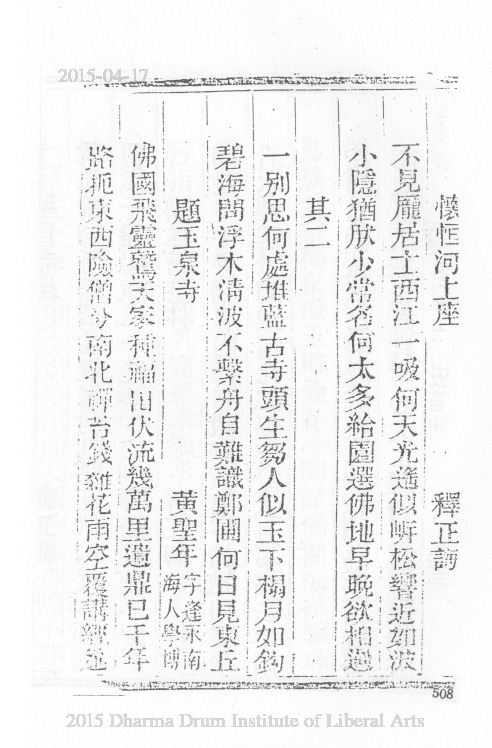 2015-04-17
懷恒河上座 釋正訶
不見龐居士西江一吸何天光遙似嶄松響近如波
小隱猶肰少常名何太多給園選佛地早晚欲相過
其二
一別思何處堆藍古寺頭生芻人似玉下榻月如鈎
碧海閻浮木清波不繫舟自難識鄭圃何日見東丘
題玉泉寺 黃聖年 字逢永南海人學博
佛國飛靈鷲天家種福田伏流幾萬里遺鼎已千年
路扼東西險僧兮南北禪苔錢雜花雨空覆講經
508
2015 Dharma Drum Institute of Liberal Arts